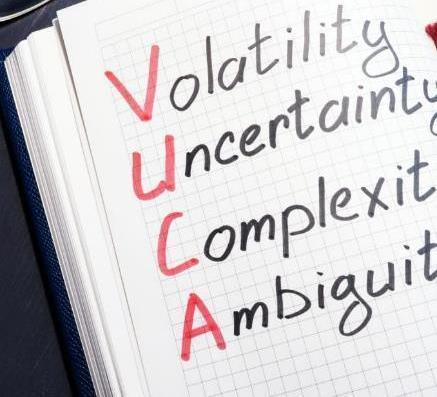 Volatility
Uncertainty
Complexit
Ambiguit